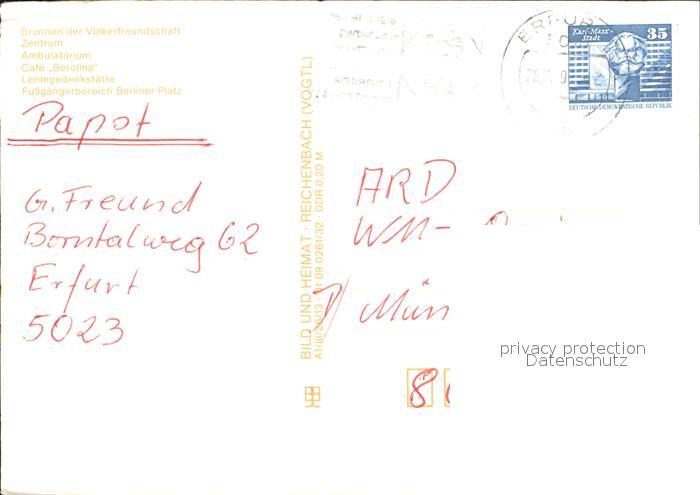 Brunnen der Völkerfreundschaft
Zentrum
Ambulatorium
Café „Berolina“
Leningedenkstätte
Fußgängerbereich Berliner Platz
Papst
G. Freund
Borntalweg 62
Erfurt
5023
BILD UND HEIMAT · REICHENBACH (VOGTL)
A1/III/26/13 · 01 09 0261/32 · DDR 0,20 M
ERFUR
Karl-Marx-Stadt 35
DEUTSCHE DEMOKRATISCHE REPUBLIK
ARD
WM-
Mün
8
privacy protection
Datenschutz